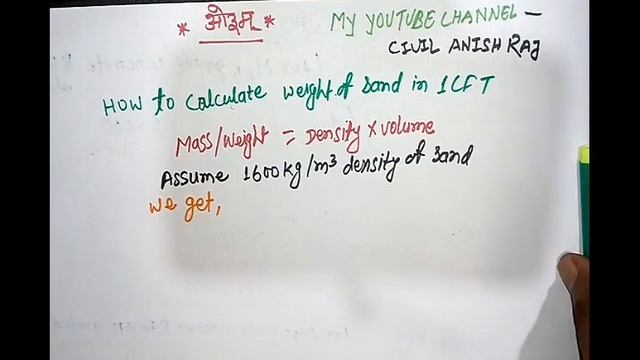 * ओइम् *
MY YOUTUBE CHANNEL —
CIVIL ANISH RAJ
HOW to calculate weight of sand in 1 CFT
Mass/Weight = Density x volume
Assume 1600 kg/m³ density of sand
We get,